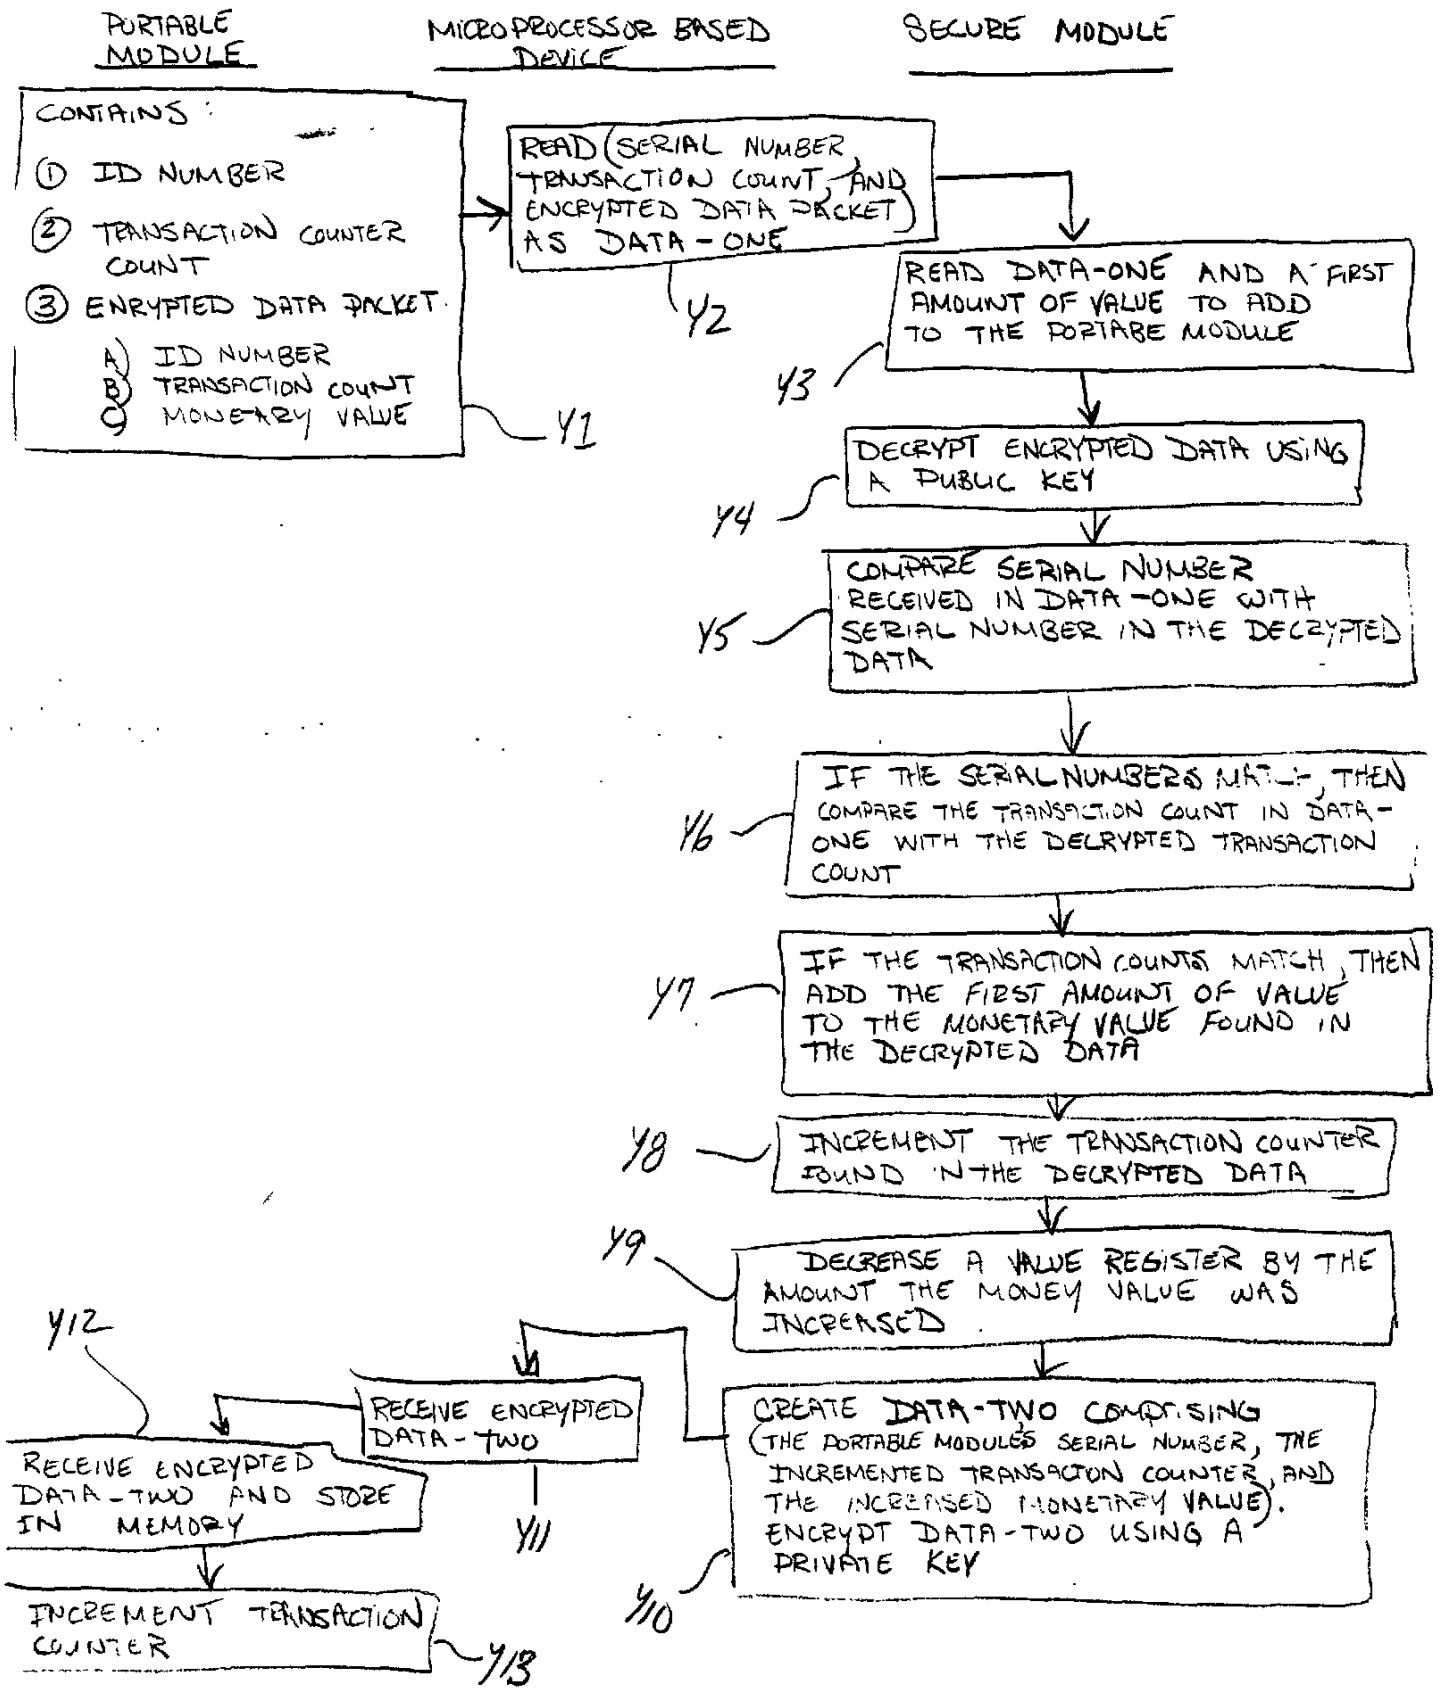 PORTABLE
MODULE
MICROPROCESSOR BASED
DEVICE
SECURE MODULE
CONTAINS:
① ID NUMBER
② TRANSACTION COUNTER
COUNT
③ ENRYPTED DATA PACKET.
A) ID NUMBER
B) TRANSACTION COUNT
C) MONETARY VALUE
Y1
READ (SERIAL NUMBER,
TRANSACTION COUNT, AND
ENCRYPTED DATA PACKET)
AS DATA-ONE
Y2
READ DATA-ONE AND A FIRST
AMOUNT OF VALUE TO ADD
TO THE PORTABE MODULE
Y3
DECRYPT ENCRYPTED DATA USING
A PUBLIC KEY
Y4
COMPARE SERIAL NUMBER
RECEIVED IN DATA-ONE WITH
SERIAL NUMBER IN THE DECRYPTED
DATA
Y5
IF THE SERIAL NUMBERS MATCH, THEN
COMPARE THE TRANSACTION COUNT IN DATA-
ONE WITH THE DECRYPTED TRANSACTION
COUNT
Y6
IF THE TRANSACTION COUNTS MATCH, THEN
ADD THE FIRST AMOUNT OF VALUE
TO THE MONETARY VALUE FOUND IN
THE DECRYPTED DATA
Y7
INCREMENT THE TRANSACTION COUNTER
FOUND IN THE DECRYPTED DATA
Y8
DECREASE A VALUE REGISTER BY THE
AMOUNT THE MONEY VALUE WAS
INCREASED
Y9
CREATE DATA-TWO COMPRISING
(THE PORTABLE MODULE'S SERIAL NUMBER, THE
INCREMENTED TRANSACTON COUNTER, AND
THE INCREASED MONETARY VALUE).
ENCRYPT DATA-TWO USING A
PRIVATE KEY
Y10
RECEIVE ENCRYPTED
DATA-TWO
Y11
Y12
RECEIVE ENCRYPTED
DATA-TWO AND STORE
IN MEMORY
INCREMENT TRANSACTION
COUNTER
Y13